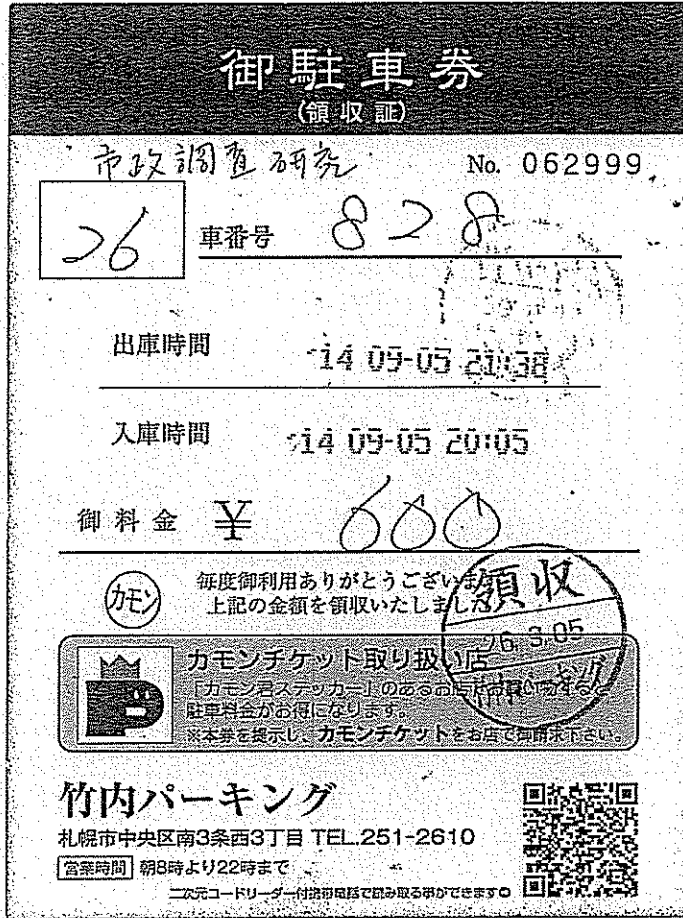 御駐車券
(領収証)
市政調査研究 No. 062999
26 車番号 828
出庫時間 '14 09-05 21:38
入庫時間 '14 09-05 20:05
御料金 ¥ 600
カモン 毎度御利用ありがとうございます
上記の金額を領収いたしました
領収
26.3.05
竹内パーキング
カモンチケット取り扱い店
「カモン君ステッカー」のあるお店でお買い物すると
駐車料金がお得になります。
※本券を提示し、カモンチケットをお店で御請求下さい。
竹内パーキング
札幌市中央区南3条西3丁目 TEL.251-2610
営業時間 朝8時より22時まで
二次元コードリーダー付携帯電話で読み取る事ができます